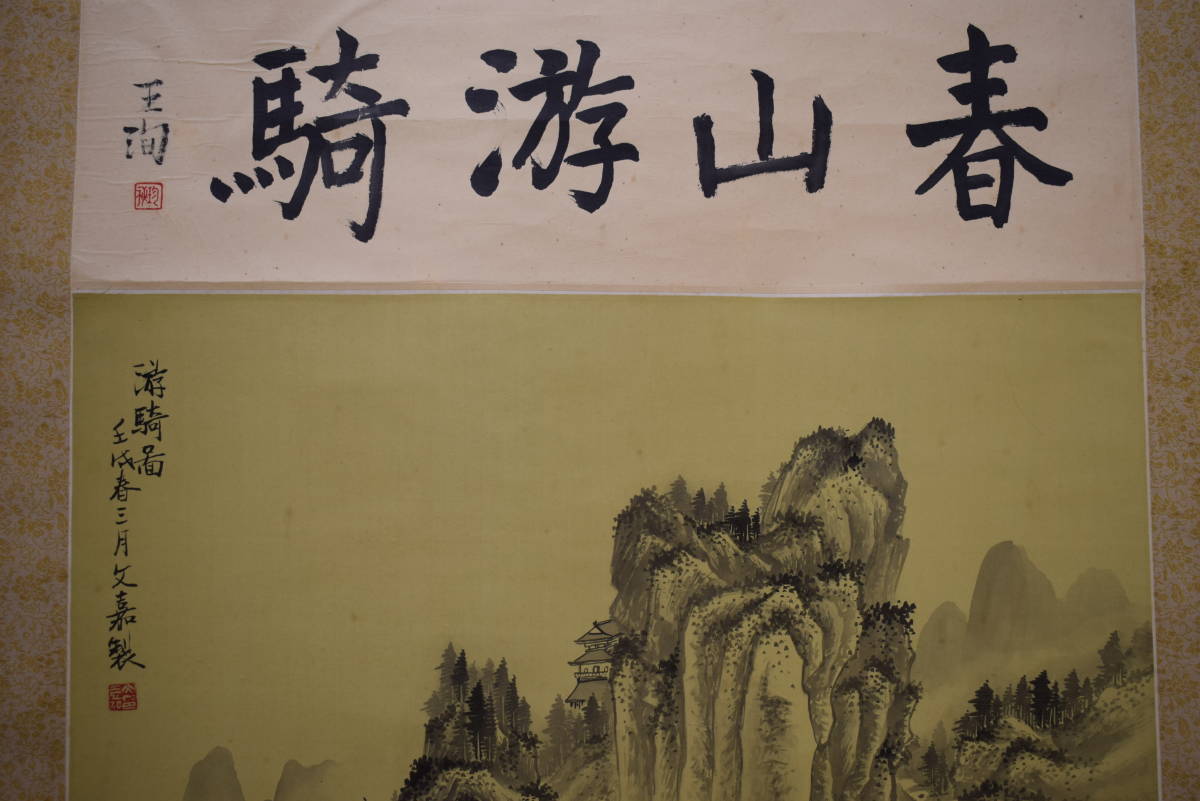 春山游騎
王洵
游騎啚
壬戌春三月文嘉製